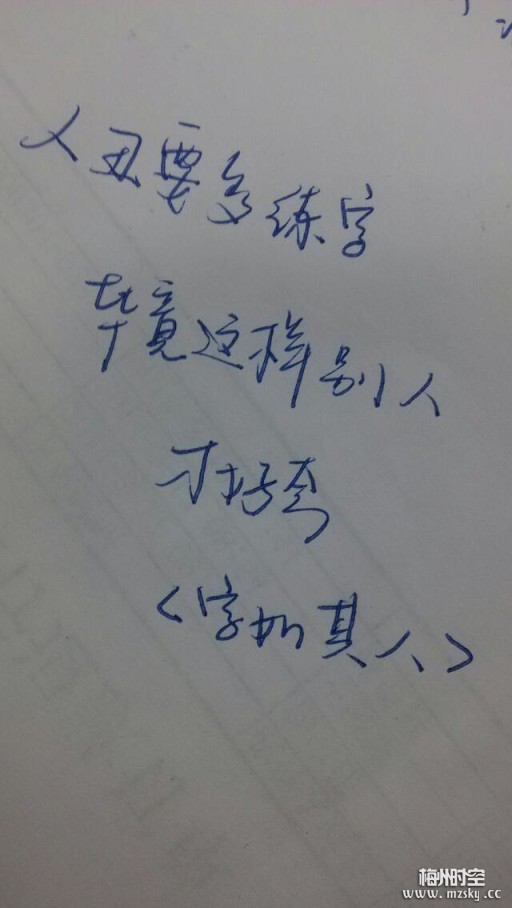 人丑要多练字
毕竟这样别人
才好夸
<字如其人>
梅州时空
www.mzsky.cc